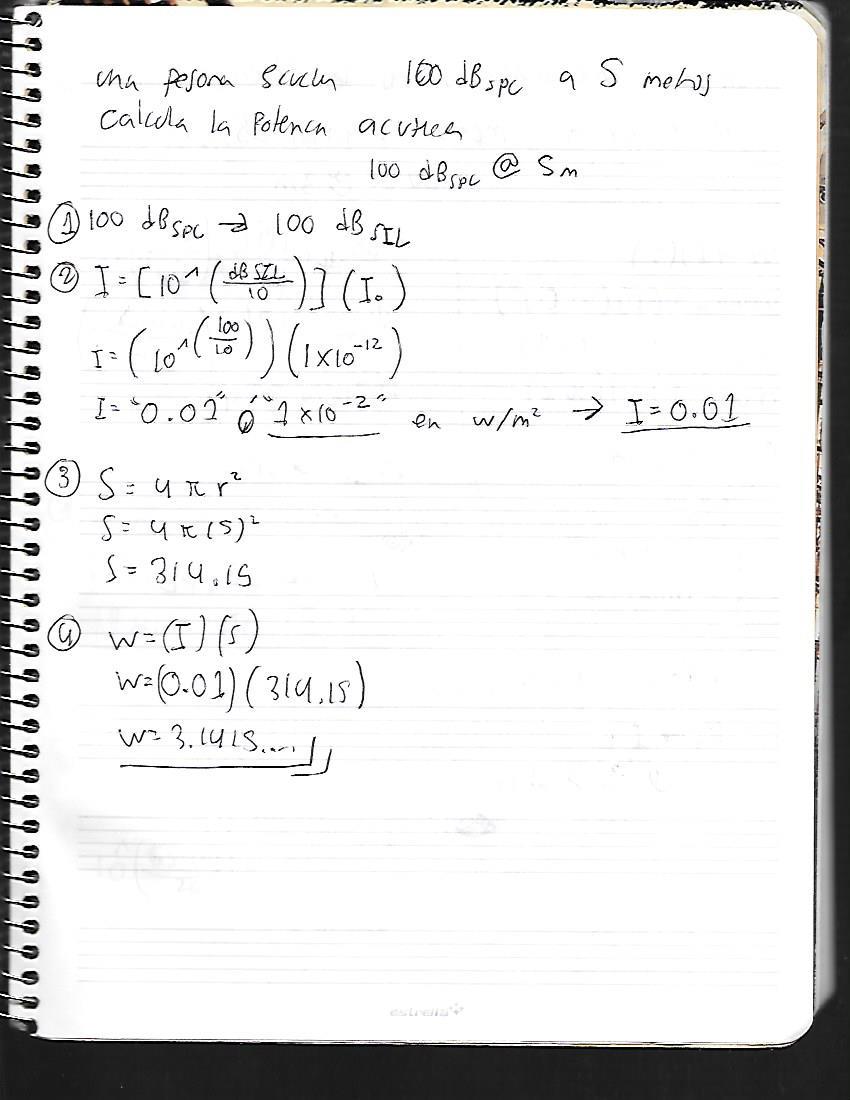 una pesona scucha 100 dBSPL a 5 metros
Calcula la Potencia acustica
100 dBSPL @ 5m
① 100 dBSPL → 100 dBSIL
② I = [10^(dBSIL/10)] (I₀)
I = (10^(100/10)) (1x10⁻¹²)
I = "0.01" ó "1x10⁻²" en w/m² → I = 0.01
③ S = 4πr²
S = 4π(5)²
S = 314.15
④ W = (I)(S)
W = (0.01)(314.15)
W = 3.1415....
estrella